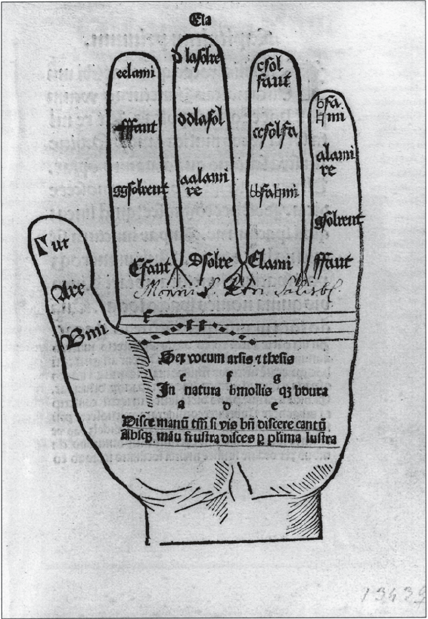 Ela
eelami
dlasolre
csol
faut
bfa
♮mi
fffaut
ddlasol
ccsolfa
alami
re
ggsolreut
aalami
re
bbfa♮mi
gsolreut
Cfaut
Dsolre
Elami
ffaut
Γ ut
Are
Bmi
Sex vocum arsis ⁊ thesis
c f g
In natura bmollis qȝ bdura
a d e
Disce manū tm̄ si vis bn̄ discere cantū
Absqȝ manu frustra disces ꝑ plima lustra
13439